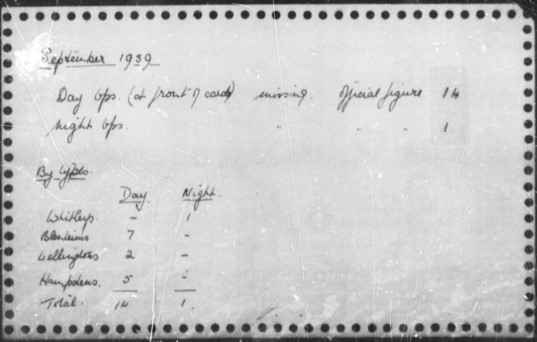 September 1939
Day Ops. (at front of cards) missing. Official figure 14
Night Ops. " " " 1
By types.
Day. Night.
Whitleys. - 1
Blenheims 7 -
Wellingtons 2 -
Hampdens. 5 -
Total. 14 1